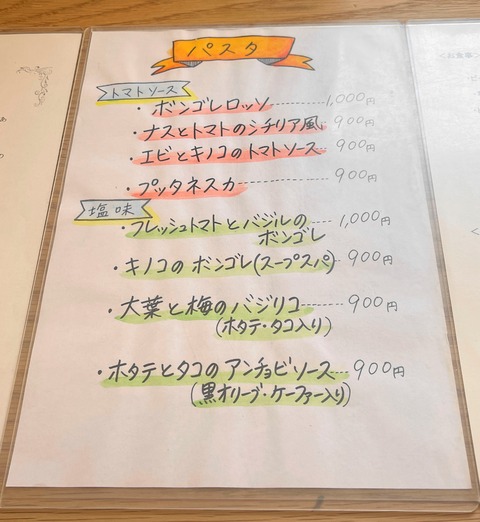 パスタ
トマトソース
・ボンゴレロッソ----------1,000円
・ナスとトマトのシチリア風 900円
・エビとキノコのトマトソース 900円
・プッタネスカ--------------900円
塩味
・フレッシュトマトとバジルの----1,000円
ボンゴレ
・キノコのボンゴレ(スープスパ) 900円
・大葉と梅のバジリコ------900円
(ホタテ・タコ入り)
・ホタテとタコのアンチョビソース----900円
(黒オリーブ・ケーファー入り)